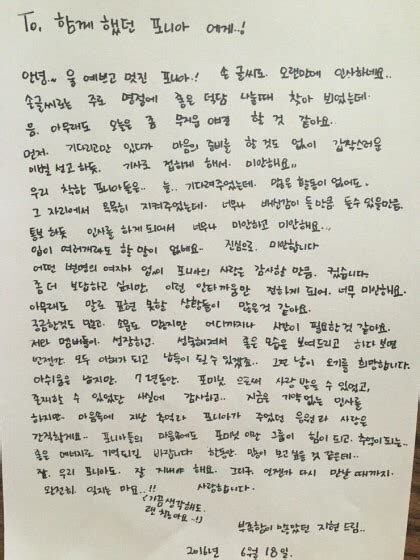 To, 함께 했던 포니아 에게..!
안녕~ 울 예쁘고 멋진 포니아.! 손글씨로. 오랜만에 인사하네요..
손글씨로는 주로 명절에 좋은 덕담 나눌때 찾아 뵈었는데.
음. 아무래도 오늘은 좀 무거운 얘길 할 것 같아요..
먼저. 기다리고만 있다가 마음의 준비를 할 것도 없이 갑작스러운
이별 선고 하듯. 기사로 접하게 해서. 미안해요..
우리 착한 포니아들은.. 늘.. 기다려주었는데. 많은 활동이 없어도.
그 자리에서 묵묵히 지켜주었는데. 너무나 배신감이 들 만큼 들수 있을만큼.
통보 하듯 인사를 하게 되어서 너무나 미안하고 미안해요...
입이 여러개라도 할 말이 없네요.. 진심으로. 미안합니다
어떤 변명의 여지가 없이 포니아의 사랑은 감사할 만큼. 컸습니다.
좀 더 보답하고 싶지만. 이런 안타까움만 전하게 되어. 너무 미안해요.
아무래도 말로 표현 못할 상황들이 많은것 같아요.
궁금한것도 많고. 소문도 많지만 어디까지나 시간이 필요한 것 같아요.
저와 멤버들이. 성장하고. 성숙해져서 좋은 모습을 보여드리고 하다 보면
언젠간. 모두 이해가 되고 납득이 될 수 있겠죠.. 그런 날이 오기를 희망합니다.
아쉬움은 남지만. 7년동안. 포미닛 으로써 사랑 받을 수 있었고,
존재할 수 있었단 사실에 감사하고.. 지금은 기약 없는 인사를
하지만. 마음속에 지난 추억과 포니아가 주었던 응원과 사랑은
간직할게요.. 포니아들의 마음속에도 포미닛 이란 그룹이 힘이 되고. 추억이 되는..
좋은 에너지로 기억되길 바랍니다. 한동안. 많이 보고 싶을 것 같은데..
잘. 우리 포니아도. 잘 지내야 해요. 그리구 언젠가 다시 만날 때까지.
완전히. 잊지는 마요..!! 사랑합니다.
(가끔 생각해도.
괜찮아요..!)
부족함이 많았던 지현 드림..
2016년 6월 18일.